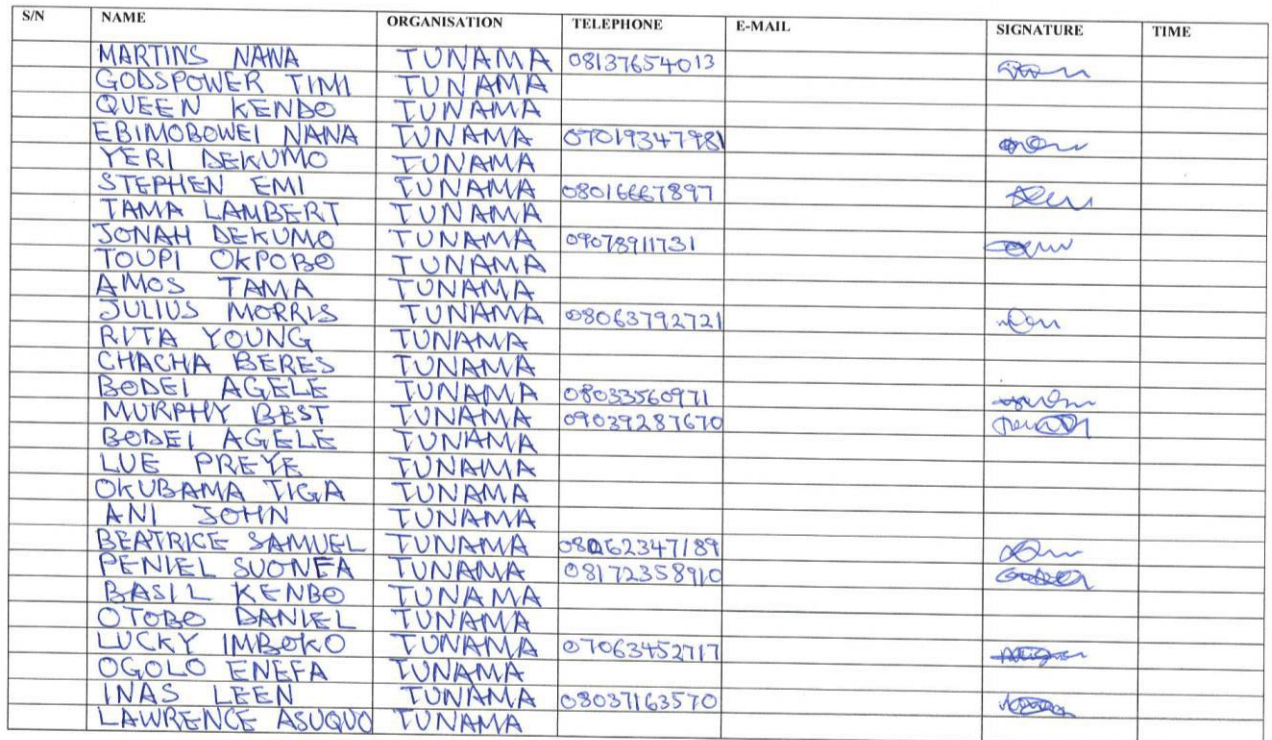 S/N NAME ORGANISATION TELEPHONE E-MAIL SIGNATURE TIME
MARTINS NANA TUNAMA 08137654013
GODSPOWER TIMI TUNAMA
QUEEN KENBO TUNAMA
EBIMOBOWEI NANA TUNAMA 07019347981
YERI DEKUMO TUNAMA
STEPHEN EMI TUNAMA 08016667897
TAMA LAMBERT TUNAMA
JONAH DEKUMO TUNAMA 09078911731
TOUPI OKPOBO TUNAMA
AMOS TAMA TUNAMA
JULIUS MORRIS TUNAMA 08063792721
RITA YOUNG TUNAMA
CHACHA BERES TUNAMA
BODEI AGELE TUNAMA 08033560971
MURPHY BEST TUNAMA 09039287670
BODEI AGELE TUNAMA
LUE PREYE TUNAMA
OKUBAMA TIGA TUNAMA
ANI JOHN TUNAMA
BEATRICE SAMUEL TUNAMA 08062347189
PENIEL SUONEFA TUNAMA 08172358910
BASIL KENBO TUNAMA
OTOBO DANIEL TUNAMA
LUCKY IMBOKO TUNAMA 07063452717
OGOLO ENEFA TUNAMA
INAS LEEN TUNAMA 08037163570
LAWRENCE ASUQUO TUNAMA